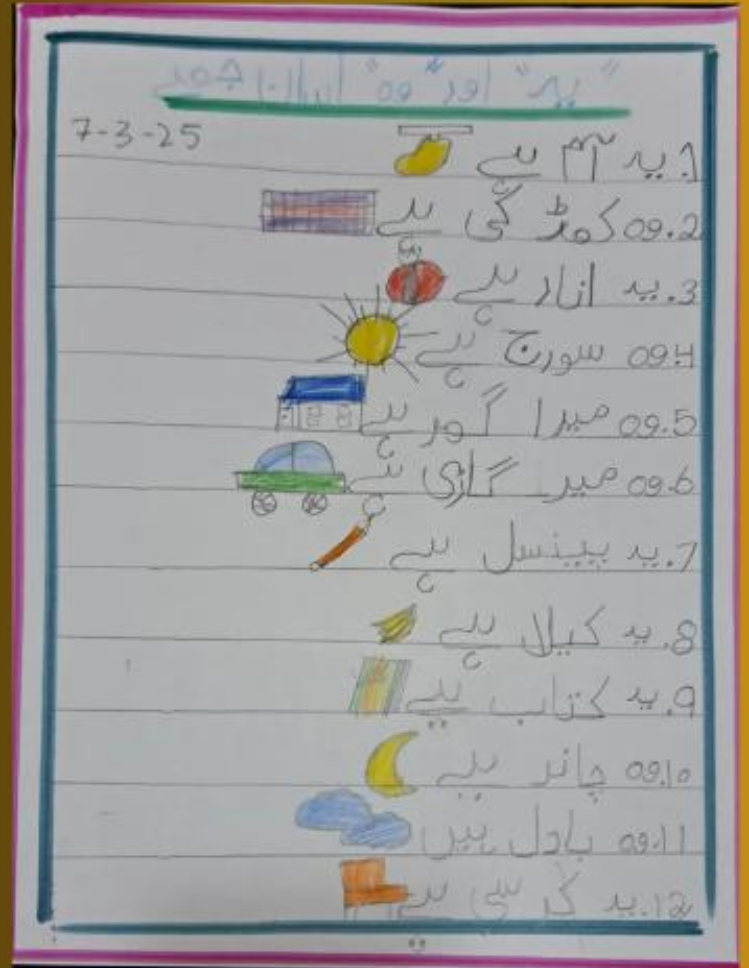 "یہ" اور "وہ" آسان جملے
7-3-25
1. یہ آم ہے
2. وہ کھڑ کی ہے
3. یہ انار ہے
4. وہ سورج ہے
5. وہ میرا گھر ہے
6. وہ میر گاڑی ہے
7. یہ پینسل ہے
8. یہ کیلا ہے
9. یہ کتاب ہے
10. وہ چاند ہے
11. وہ بادل ہیں
12. یہ کر سی ہے